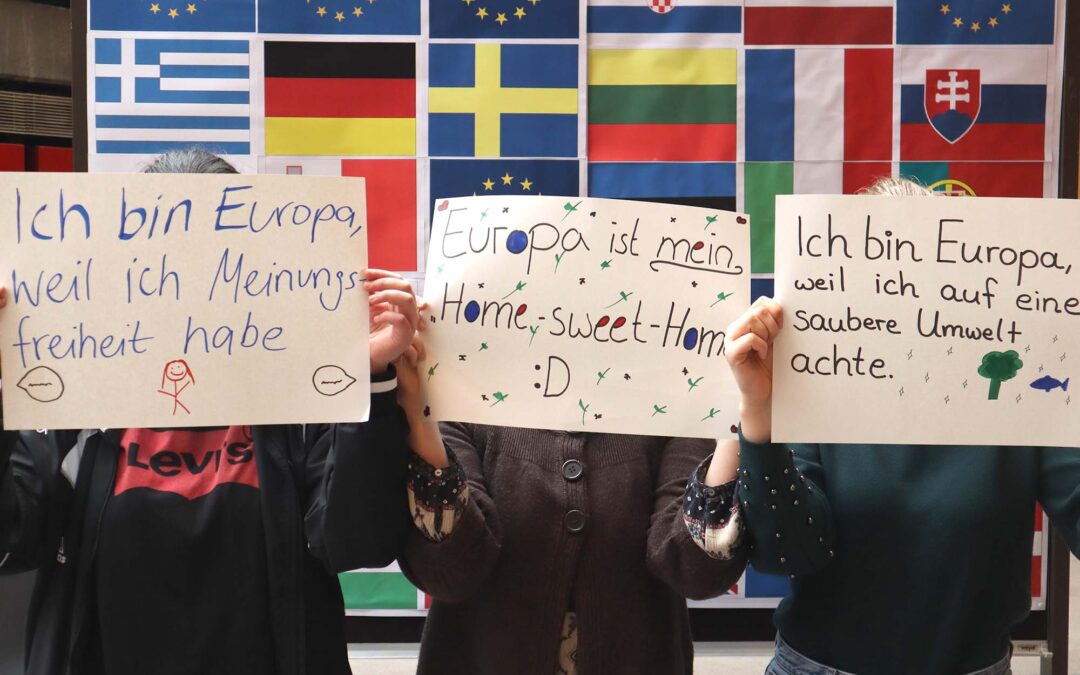 Ich bin Europa,
weil ich Meinungs-
freiheit habe
Levi's
Europa ist mein
„Home-sweet-Hom
:D
Ich bin Europa,
weil ich auf eine
saubere Umwelt
achte.